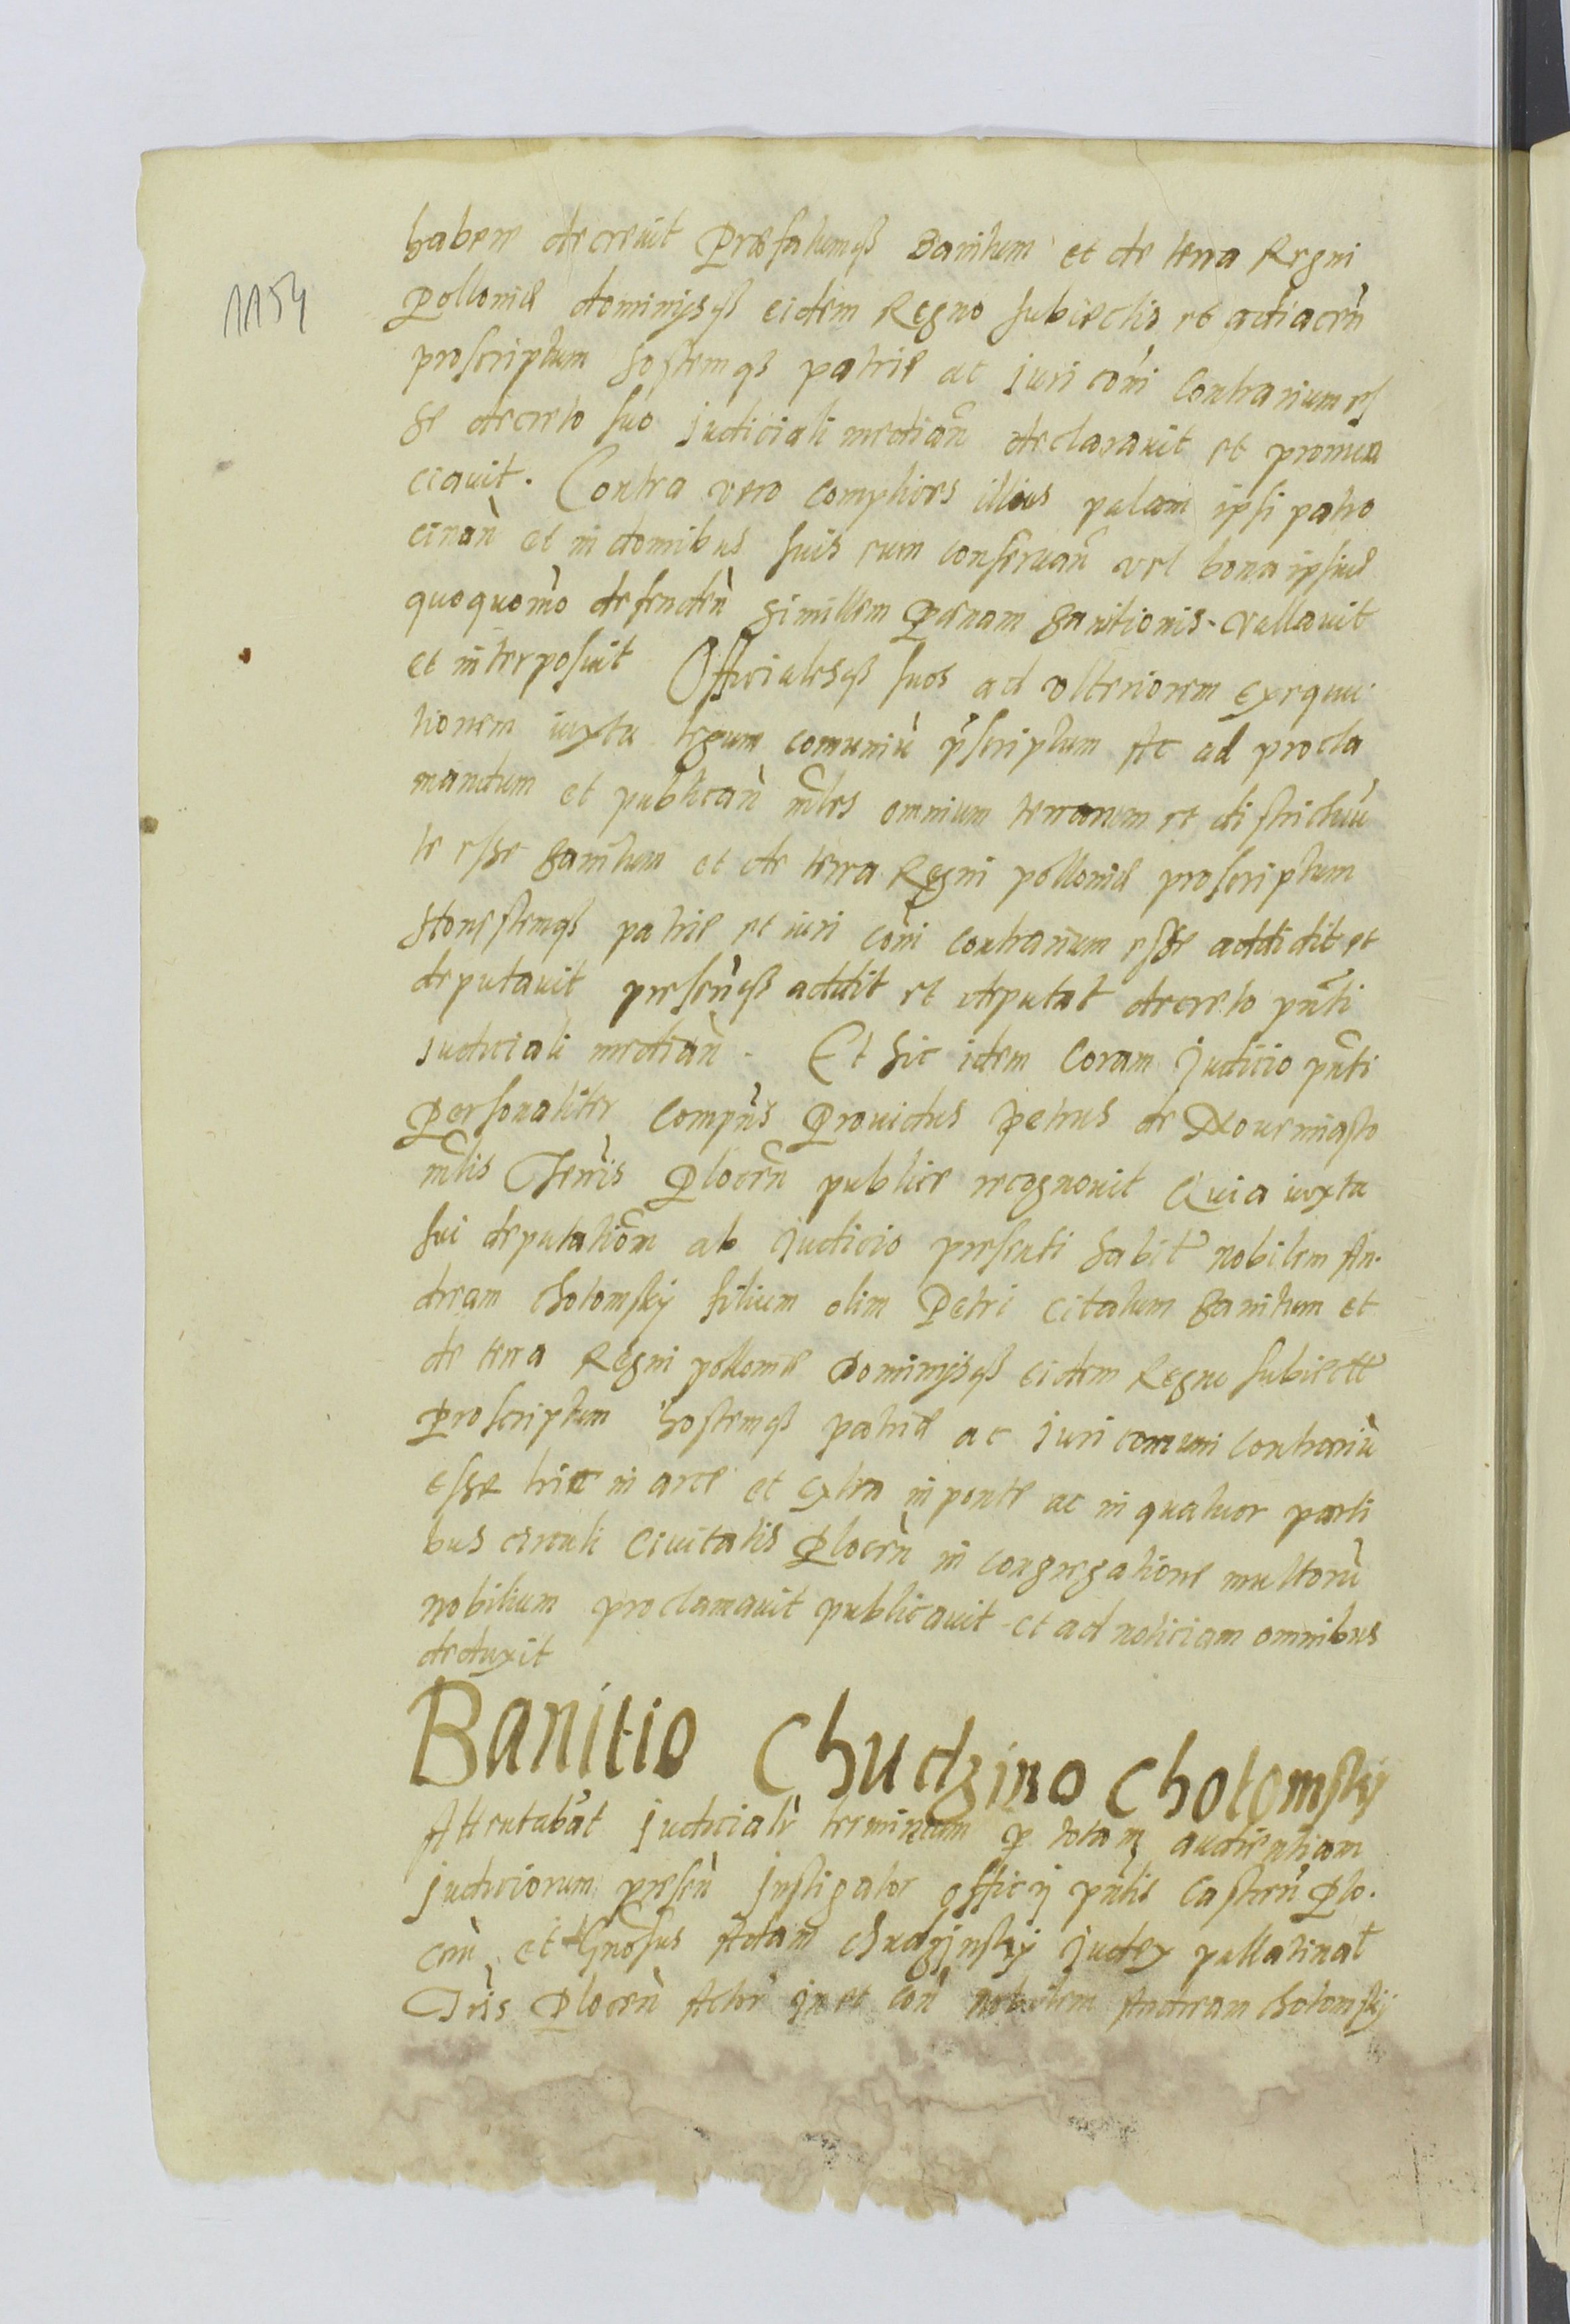 habere decreuit Præfatumqȝ Banitum et de terra Regni
1154
Polloniæ dominijsqȝ eidem Regno subiectis et adiacen̄
proscriptum hostemqȝ patriæ ac Juri cōni Contrarium es
se decreto suo Judiciali median̄ declarauit et pronun
ciauit. Contra vero Complices illius palam ipsi patro
cinan̄ et in domibus suis eum conseruan̄ vel bona ipsius
quoquomō defenden̄ Similem Pœnam Banitionis vallauit
et interposuit Officialesqȝ suos ad vlteriorem exequu
tionem iuxta legum comuniū p̄scriptum Ac ad procla
mandum et publican̄ m̄les omnium terrarum et districtuū
te esse Banitum et de terra Regni polloniæ proscriptum
Hostemqȝ patriæ et iuri cōni contrarium esse addidit et
deputauit presen̄qȝ addit et deputat decreto pn̄ti
Judiciali median̄. Et hic idem Coram Judicio pn̄ti
Personaliter Compn̄s Prouidus Petrus de Nouemiasto
m̄lis Ter̄ris Plocen̄ publice recognouit Quia iuxta
sui deputatiōm ab Judicio presenti habit nobilem An.
dream Chotomsky filium olim Petri Citatum Banitum et
de terra Regni polloniæ Dominijsqȝ eidem Regno subiect
Proscriptum hostemqȝ patriæ ac Juri comuni contrariū
esse hic in arce et extra in ponte ac in quatuor parti
bus circuli Ciuitatis Plocen̄ in congregatione multorū
nobilium proclamauit publicauit et ad noticiam omnibus
deduxit
Banitio Chudzino Chotomsky
Attentabat Judicialr̄ terminum p totam audientiam
Judiciorum presen̄ Instigator officij pn̄tis Castren̄ Plo.
cen̄ et Gn̄osus Adam Chudzinsky Judex pallatinat
Tr̄is Plocen̄ Actor in et con̄ nobilem Andream Chotomsky